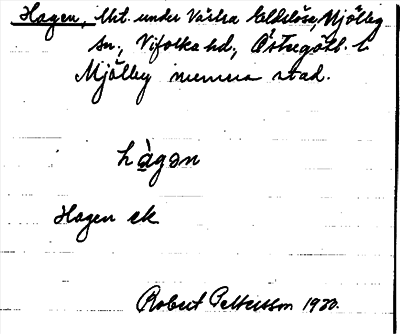 Hagen, Uht. under Västra Eldslösa, Mjölby
sn, Vifolka hd, Östergötl. l.
Mjölby numera stad.
hàgən
Hagen ek
Robert Pettersson 1930.